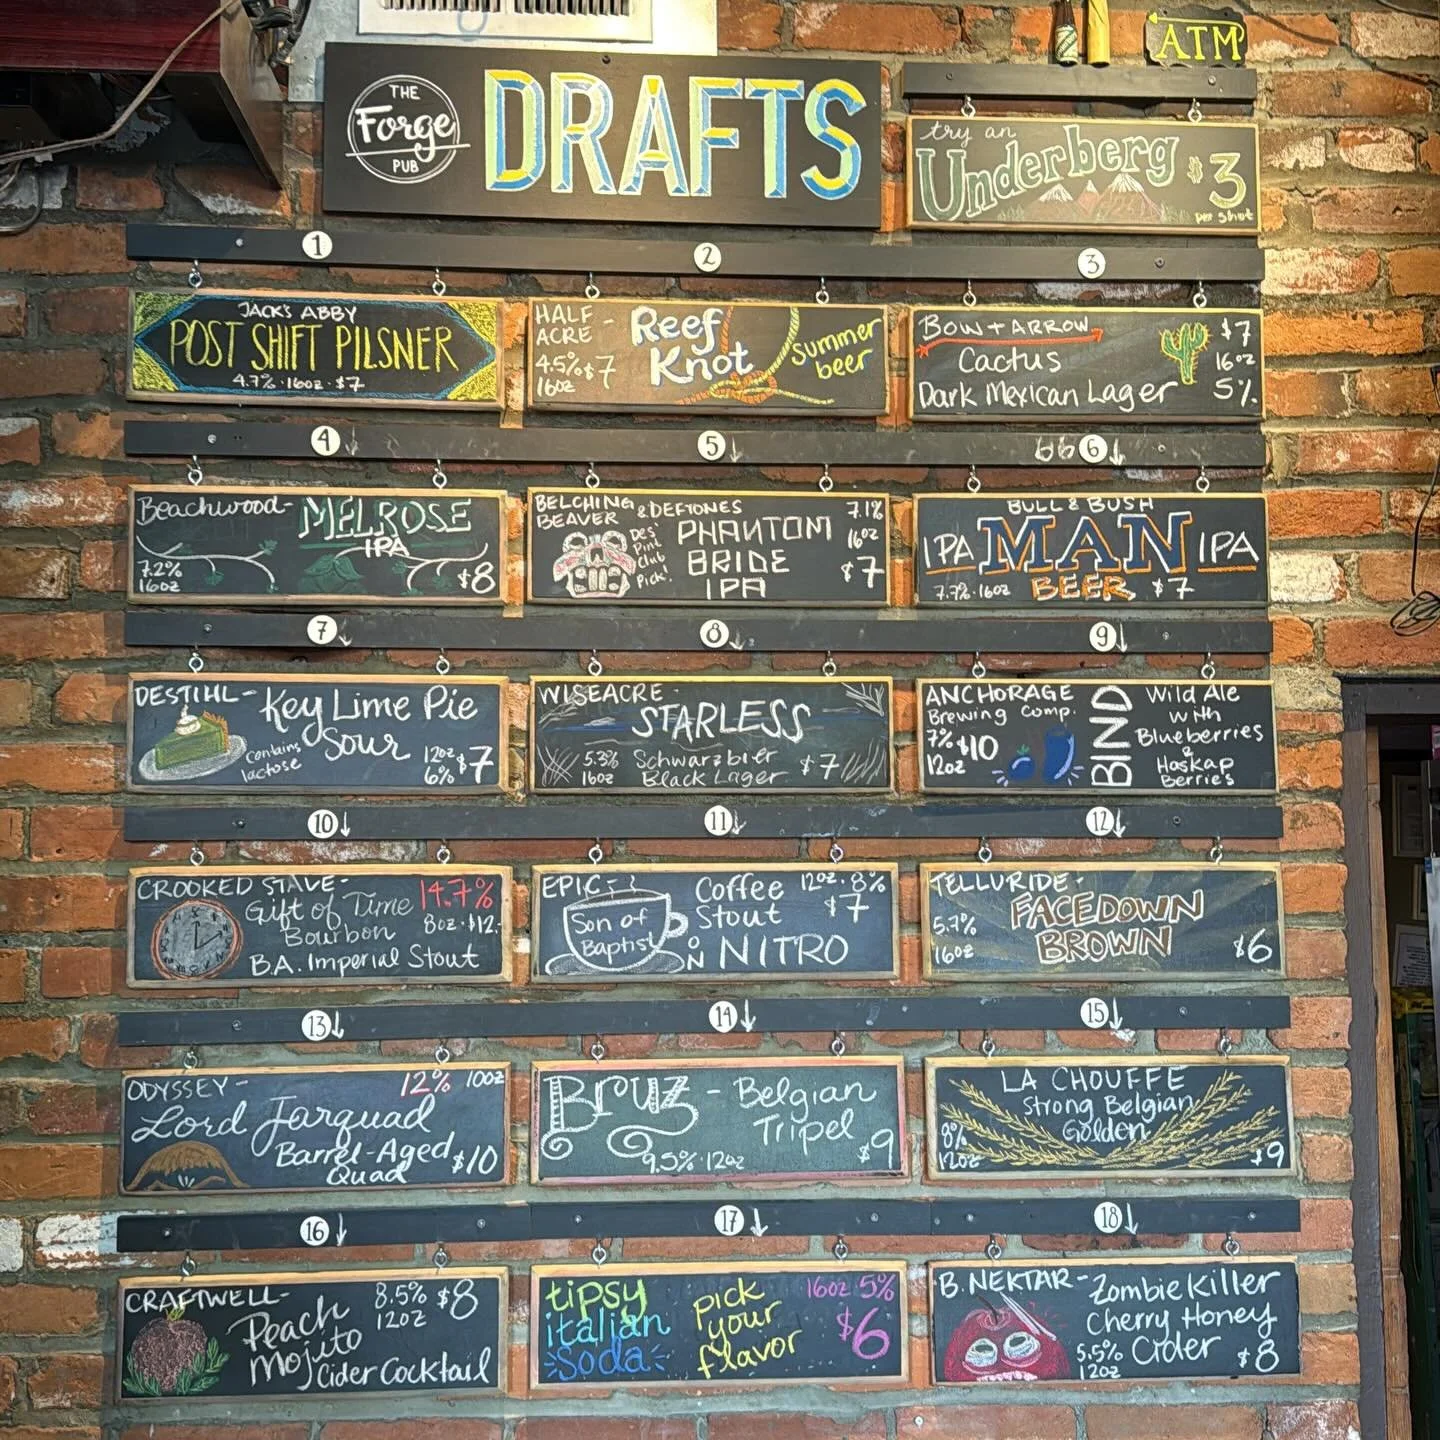 THE
Forge
PUB
DRAFTS
ATM
try an
Underberg
$3
per shot
1
2
3
JACK'S ABBY
POST SHIFT PILSNER
4.7% · 16oz · $7
HALF ACRE -
4.5% $7
16oz
Reef
Knot
Summer
beer
BOW + ARROW
Cactus
Dark Mexican Lager
$7
16oz
5%
4
5
6
Beachwood-
MELROSE
IPA
7.2%
16oz
$8
BELCHING
BEAVER
& DEFTONES
PHANTOM
BRIDE
IPA
Des'
Pint
Club
Pick!
7.1%
16oz
$7
BULL & BUSH
IPA MAN IPA
BEER
7.7% · 16oz
$7
7
8
9
DESTIHL -
Key Lime Pie
Sour
contains
lactose
12oz
6%
$7
WISEACRE -
STARLESS
5.3%
16oz
Schwarzbier
Black Lager
$7
ANCHORAGE
Brewing Comp.
7% $10
12oz
BIND
Wild Ale
with
Blueberries
&
Haskap
Berries
10
11
12
CROOKED STAVE -
Gift of Time
Bourbon
B.A. Imperial Stout
14.7%
8oz · $12.-
EPIC -
Son of
Baptist
Coffee
Stout
ON NITRO
12oz · 8%
$7
TELLURIDE -
FACEDOWN
BROWN
5.7%
16oz
$6
13
14
15
ODYSSEY -
12% 10oz
Lord Farquad
Barrel-Aged
Quad
$10
Bruz - Belgian
Tripel
9.5% · 12oz
$9
LA CHOUFFE
Strong Belgian
Golden
8%
12oz
$9
16
17
18
CRAFTWELL -
Peach
Mojito
Cider Cocktail
8.5% $8
12oz
tipsy
italian
Soda
pick
your
flavor
16oz 5%
$6
B. NEKTAR -
Zombie Killer
Cherry Honey
Cider
5.5%
12oz
$8